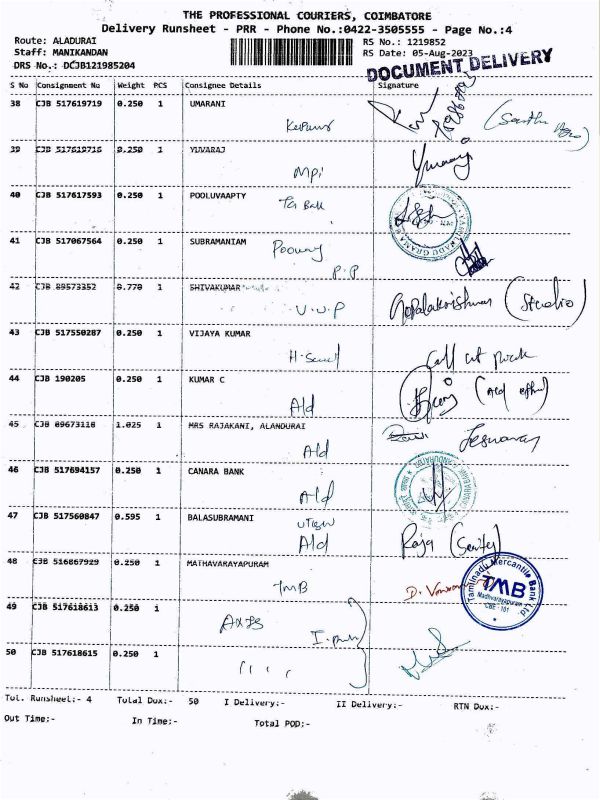 THE PROFESSIONAL COURIERS, COIMBATORE
Delivery Runsheet - PRR - Phone No.:0422-3505555 - Page No.:4
Route: ALADURAI
Staff: MANIKANDAN
DRS No.: DCJB121985204
RS No.: 1219852
RS Date: 05-Aug-2023
DOCUMENT DELIVERY
S No Consignment No Weight PCS Consignee Details Signature
38 CJB 517619719 0.250 1 UMARANI
39 CJB 517619716 0.250 1 YUVARAJ
MPi
40 CJB 517617593 0.250 1 POOLUVAAPTY
41 CJB 517067564 0.250 1 SUBRAMANIAM
P.P
42 CJB 89573352 0.770 1 SHIVAKUMAR
V.V.P Gopalakrishnan (Studio)
43 CJB 517550287 0.250 1 VIJAYA KUMAR
44 CJB 190205 0.250 1 KUMAR C
Ald
45 CJB 89673118 1.025 1 MRS RAJAKANI, ALANDURAI
Ald
46 CJB 517694157 0.250 1 CANARA BANK
Ald
47 CJB 517560847 0.595 1 BALASUBRAMANI
Ald Raja
48 CJB 516867929 0.250 1 MATHAVARAYAPURAM
TMB D.
Tamilnadu Mercantile Bank Ltd.
TMB
Madhvarayapuram
CBE - 101
49 CJB 517618613 0.250 1
AXIS
50 CJB 517618615 0.250 1
Tot. Runsheet:- 4 Total Dox:- 50 I Delivery:- II Delivery:- RTN Dox:-
Out Time:- In Time:- Total POD:-